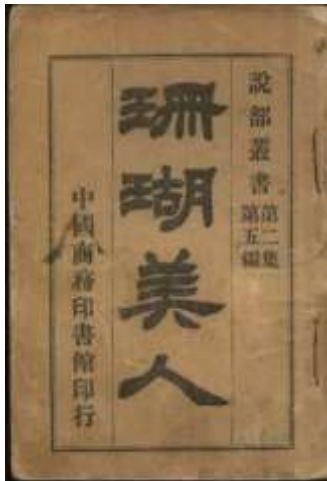 說部叢書
第二集
第五編
珊瑚美人
中國商務印書館印行